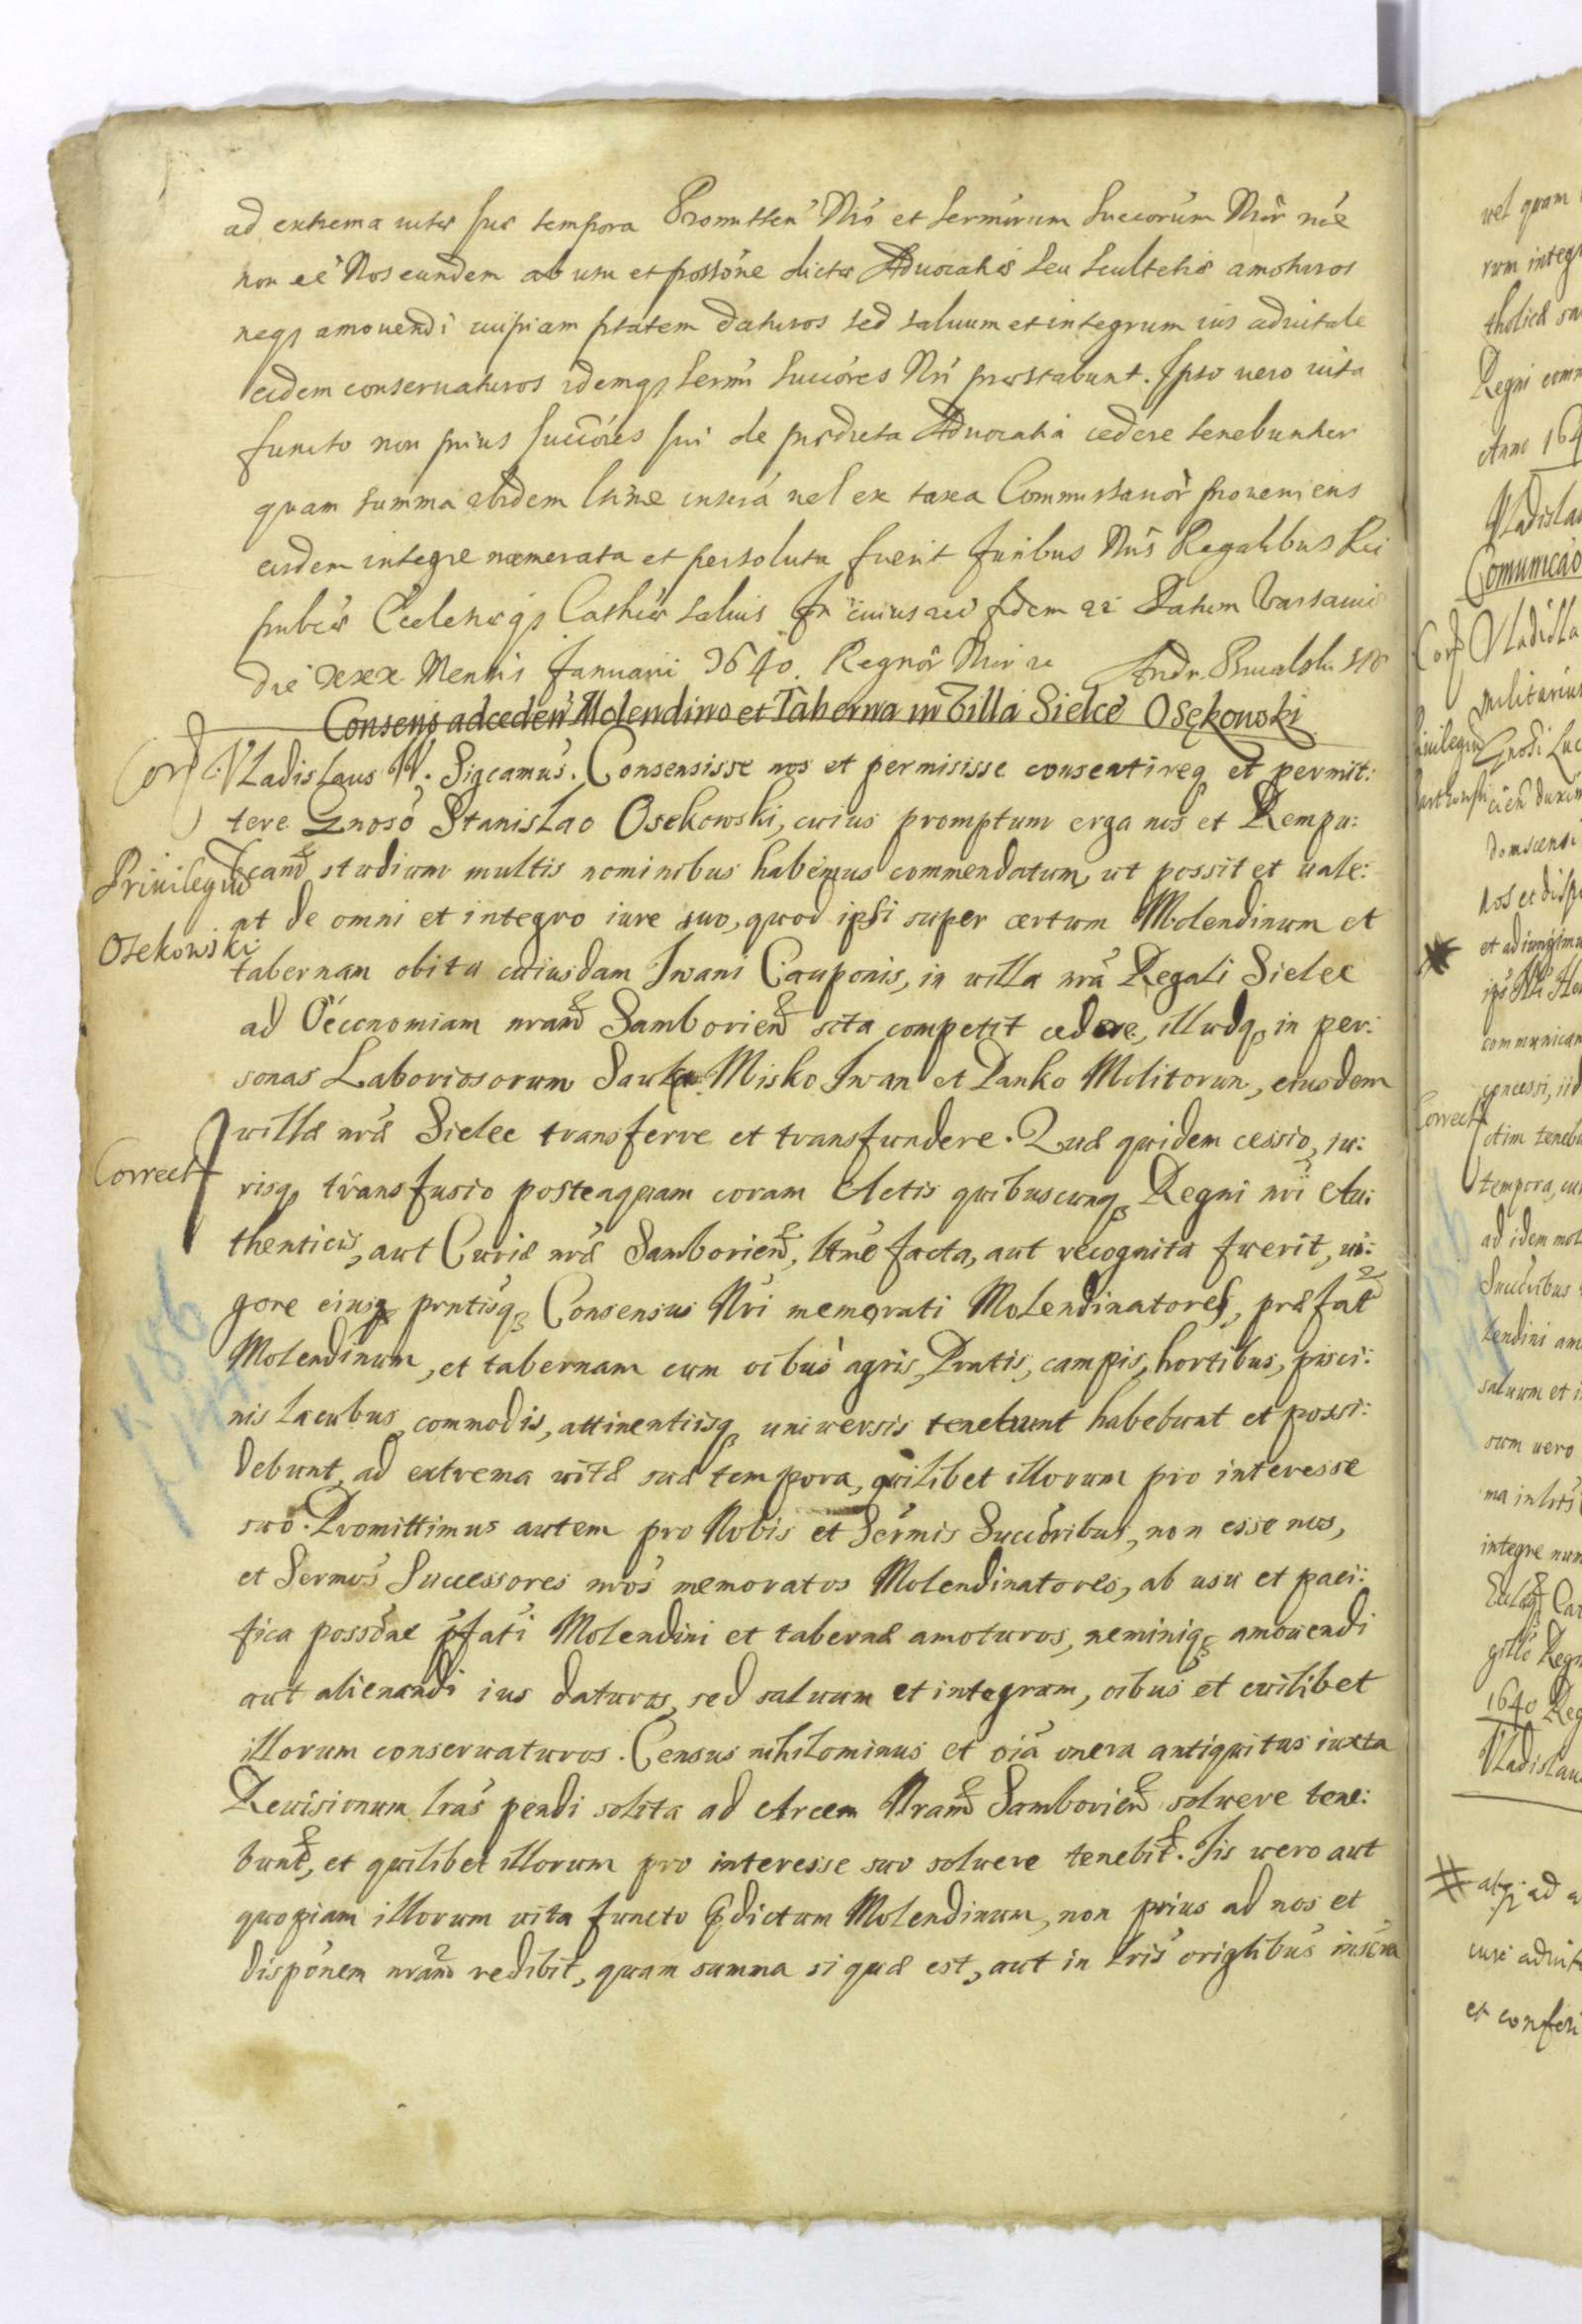 ad extrema vitæ suæ tempora Promitten Nrõ et Sermörum Succorum Nror nõie
non eẽ Nos eundem ab usu et possõne dictæ Aduocatiæ seu Scultetiæ amoturos
neqȝ amouendi cuipiam ptatem daturos sed saluum et integrum ius aduitale
eidem conseruaturos idemqȝ Sermi Succores Nri præstabunt. Ipso uero uita
functo non prius Succores sui de prædicta Aduocatia cedere tenebuntur
quam summa ibidem lrtne inscrã uel ex taxa Commissarior proueniens
eisdem integre numerata et persoluta fuerit Juribus Nris Regalibus Rei
pubcæ Eccleiæqȝ Cathcæ saluis In cuius rei fidem ꝛc Datum Varsauiæ
die xxx Mensis Januarii 1640. Regnor Nror ꝛc Andr.
Consens ad ceden Molendino et Taberna in Villa Sielce Osękowski
Corr Vladislaus IV. Sigcamus. Consensisse nos et permisisse consentireqȝ et permit:
tere Gnoso Stanislao Osekowski, cuius promptum erga nos et Rempu:
Priuilegium bcam studium multis nominibus habemus commendatum, ut possit et uale:
at de omni et integro iure suo, quod ipsi super certum Molendinum et
Osekowski:
tabernam obitu cuiusdam Iwani Cauponis, in uilla nrã Regali Sielec
ad Oeconomiam nram Samborien sita competit cedere, illudqȝ in per:
sonas Laboriosorum Misko Iwan et Danko Molitorum, eiusdem
uillæ nræ Sielec transferre et transfundere. Quæ quidem cessio, iu:
Correct risqȝ transfusio posteaquam coram Actis quibuscunqȝ Regni nri Au:
thenticis, aut Curiæ nræ Samborien, lrtne facta, aut recognita fuerit, ui:
gore eiusqȝ prntisqȝ Consensus Nri memorati Molendinatores, præfat
Molendinum, et tabernam cum oibus agris, Pratis, campis, hortibus, pisci:
nis lacubus, commodis, attinentiisqȝ uniuersis tenebunt habebunt et possi:
debunt, ad extrema uitæ suæ tempora, quilibet illorum pro interesse
suo. Promittimus autem pro Nobis et Sermis Succoribus, non esse nos,
et Sermos Successores nros memoratos Molendinatores, ab usu et paci:
fica possone pfati Molendini et tabernæ amoturos, neminiqȝ amouendi
aut alienandi ius daturos, sed saluum et integrum, oibus et cuilibet
illorum conseruaturos. Census nihilominus et oia onera antiquitus iuxta
Reuisionum lras pendi solita ad Arcem Nram Samborien soluere tene:
bunt, et quilibet illorum pro interesse suo soluere tenebit. Iis uero aut
quopiam illorum uita functo pdictum Molendinum, non prius ad nos et
disponem nram redibit, quam summa si quæ est, aut in lris origlibus inscra
uel quam
rum integr
tholicæ
Regni
Anno 164
Vladislau
Comunicao
Corr Vladisla
militarium
nos et disp
et adiungimus
communican
concessi, iid
Correct
etim teneb
tempora, cu
ad idem mol
Succoribus
lendini am
saluum et i
sum uero
ma in lris
integre num
1640 Reg
Vladislau
# atqȝ ad
iure aduita
et conferi